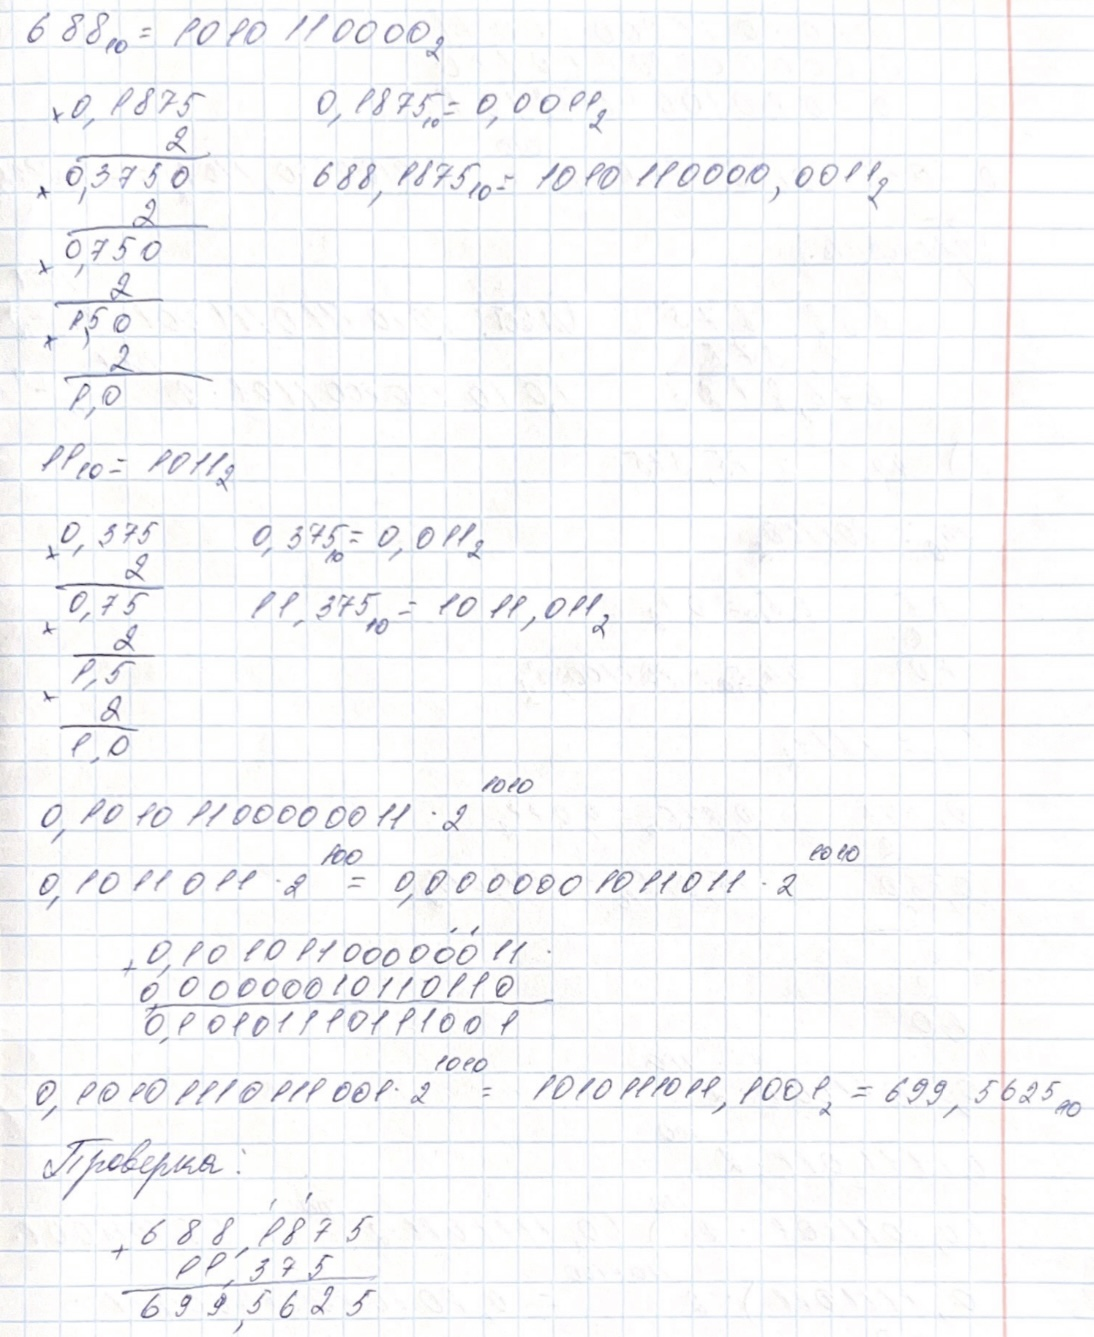 688₁₀ = 1010110000₂
× 0,1875
2
0,1875₁₀ = 0,0011₂
× 0,3750
2
688,1875₁₀ = 1010110000,0011₂
× 0,750
2
× 1,50
2
1,0
11₁₀ = 1011₂
× 0,375
2
0,375₁₀ = 0,011₂
× 0,75
2
11,375₁₀ = 1011,011₂
× 1,5
2
1,0
0,10101100000011 · 2¹⁰¹⁰
0,1011011 · 2¹⁰⁰ = 0,0000001011011 · 2¹⁰¹⁰
+ 0,10101100000011
0,00000010110110
0,10101110111001
0,10101110111001 · 2¹⁰¹⁰ = 1010111011,1001₂ = 699,5625₁₀
Проверка:
+ 688,1875
11,375
699,5625